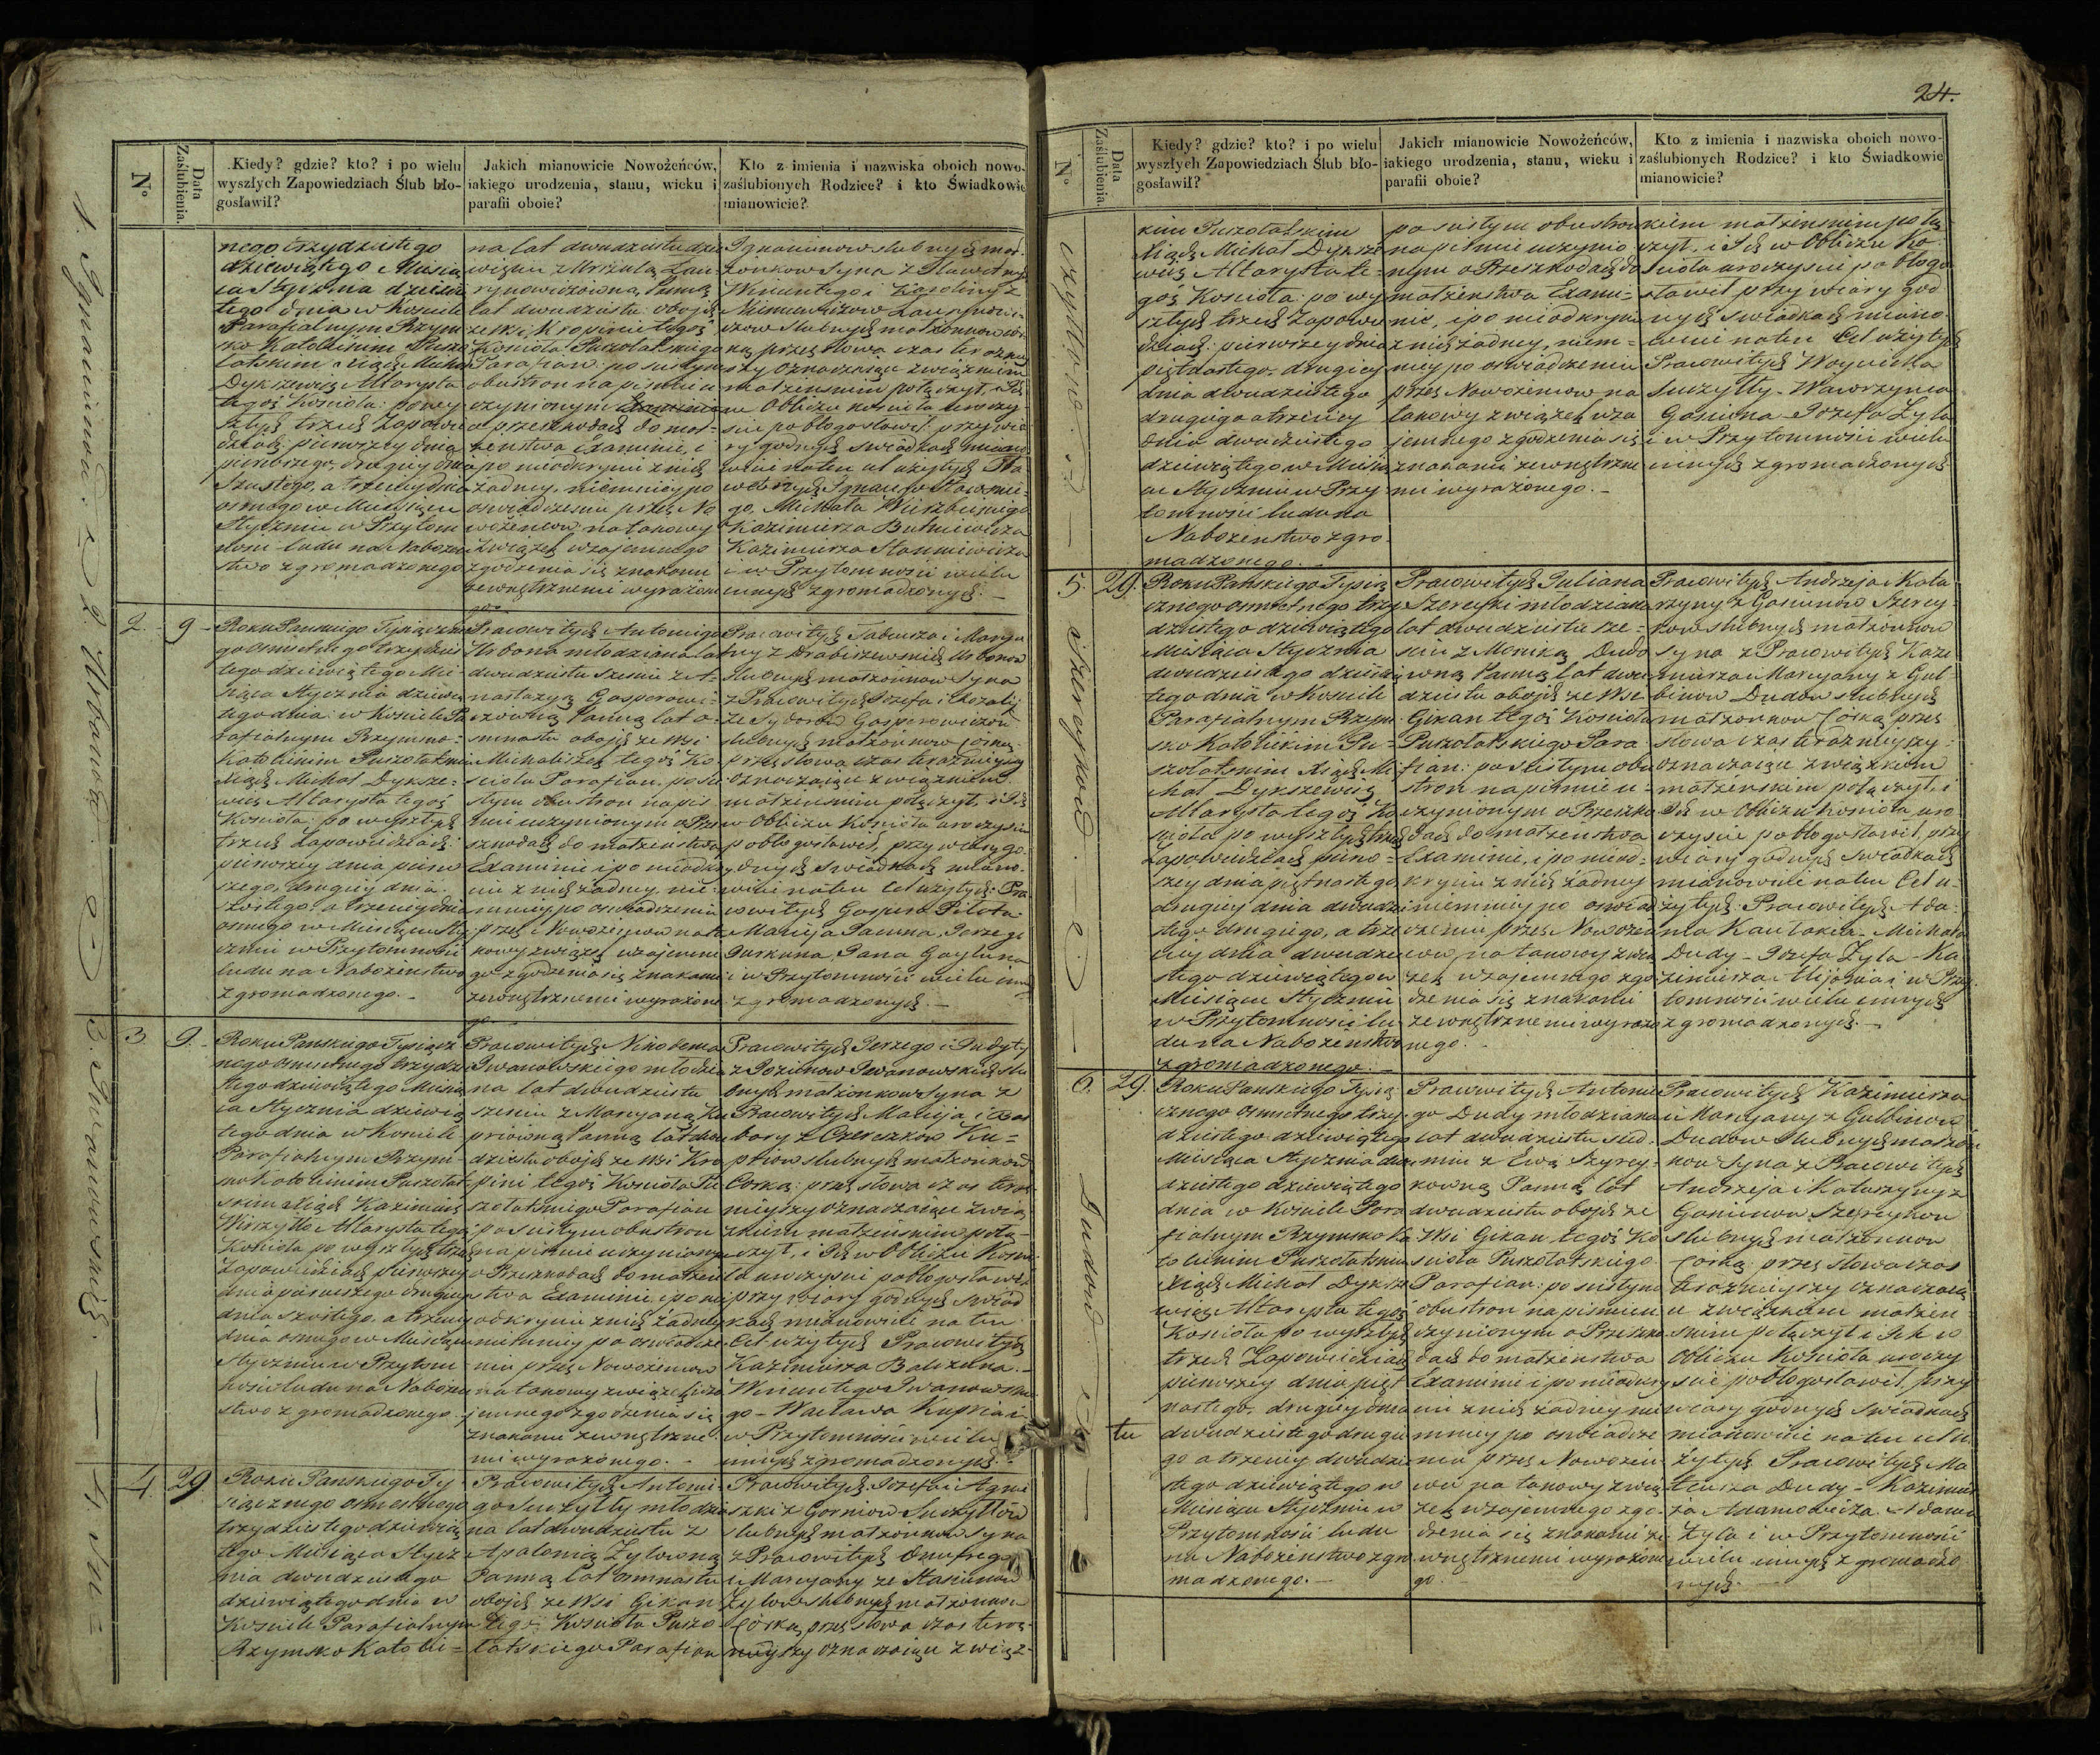 24.
N°
Data Zaślubienia.
Kiedy? gdzie? kto? i po wielu
wyszłych Zapowiedziach Ślub bło-
gosławił?
Jakich mianowicie Nowożeńców,
iakiego urodzenia, stanu, wieku i
parafii oboie?
Kto z imienia i nazwiska oboich nowo-
zaślubionych Rodzice? i kto Świadkowie
mianowicie?
nego trzydziestego
dziewiątego Miesią
ca Stycznia dziewią
tego dnia w Kosciele
Parafialnym Rzym
sko Katolickim Puszo
łatskim Xiądz Michał
Dykszewicz Altarysta
tegoż Kościoła: po wy
szłych trzech Zapowie
dziach: pierwszey dnia
pierwszego, drugiey dnia
szostego, a trzeciey dnia
osmego w Miesiącu
Styczniu w Przytom
ności ludu na Nabożeń
stwo zgromadzonego
na lat dwudziestu dzie
więciu z
lat dwudziestu obojch
ze Wsi Kropinie tegoż
Kościoła Puszołatskiego
Parafian: po scisłym
obustron na pismie u
czynionym
o przeszkodach do mał
żeństwa Examinie, i
po nieodkryciu z nich
żadney, niemniey po
oswiadczeniu przez No
wożeniow na takowy
Związek wzajemnego
zgodzenia się znakami
zewnętrznemi wyrażone
go
Ignacimow slubnych mał
żonkow Syna z
Wincentego i Karoliny z
slubnych małżonkow cor
ką przez słowa czas teraznie
szy oznaczaiące związkiem
małżenskim połączył, i Ich
w Obliczu kościoła uroczy
scie pobłogosławił: przy wia
ry godnych swiadkach miano
wicie na ten cel użytych
Ignacego
go, Michała
Kazimierza Butkiewicza
Kazimierza Stankiewicza
i w Przytomności wielu
innych zgromadzonych. —
2. 9
Roku Panskiego Tysiączne
go osmsetnego trzydzies
tego dziewiątego Mie
siąca Stycznia dziewią
tego dnia: w Kosciele Pa
rafialnym Rzymsko-
Katolickim Puszołatskim
Xiądz Michał Dyksze-
wicz Altarysta tegoż
Kościoła: po wyszłych
trzech Zapowiedziach:
pierwszey dnia pierw
szego, drugiey dnia
szostego, a trzeciey dnia
osmego w Miesiącu Sty
czniu w Przytomności
ludu na Nabożeństwo
zgromadzonego. —
Pracowitych Antoniego
Urbona młodziana lat
dwudziestu szesciu z A-
nastazyą Gasperowi-
czowną Panną lat o-
smnastu obojch ze Wsi
Michaliszek tegoż Ko
scioła Parafian, po sci
słym obustron na pis
mie uczynionym o Prze
szkodach do małżeństwa
Examinie i po nieodkry
ciu z nich żadney, nie
mniey po oswiadczeniu
przez Nowożeniow na ta
kowy związek wzajemne
go zgodzenia się znakami
zewnętrznemi wyrażone
go
Pracowitych Tadeusza i Marya
ny z Drobiszewskich Urbonow
slubnych małżonkow Syna
z Pracowitych Jozefa i Rozalij
ze Sydorow Gasperowiczow
slubnych małżonkow corką:
przez słowa czas teraznieyszy
oznaczaiące związkiem
małżenskim połączył, i Ich
w Obliczu Kościoła uroczyscie
pobłogosławił, przy wiary go-
dnych swiadkach miano-
wicie na ten Cel użytych: Pra
cowitych Gaspera Pilota
Macieja Jerzego
Jana Gayluna
i w Przytomności wielu inn
zgromadzonych. —
3. 9.
Roku Panskiego Tysiącz
nego osmsetnego trzydzie
stego dziewiątego Miesią
ca Stycznia dziewią
tego dnia w Kościele
Parafialnym Rzym
sko Katolickim Puszołat
skim Xiądz Kazimierz
Wirszyłło Altarysta tegoż
Kościoła po wyszłych trzech
Zapowiedziach pierwszey
dnia pierwszego drugiey
dnia szostego, a trzeciey
dnia osmego w Miesiącu
Styczniu w Przytom
ności ludu na Nabożeń
stwo zgromadzonego
Pracowitych Nikodema
Iwanowskiego młodzia
na lat dwudziestu
szesciu z Maryaną Ku
priowną Panną lat dwu
dziestu obojch ze Wsi Kro
pini tegoż Kościoła Pu
szołatskiego Parafian
po scisłym obustron
na pismie uczynionym
o Przeszkodach do małżeń
stwa Examinie i po nie
odkryciu z nich żadney
niemniey po oswiadcze
niu przez Nowożeniow
na takowy związek wza
jemnego zgodzenia się
znakami zewnętrzne
mi wyrażonego. —
Pracowitych Jerzego i Judyty
z Iwanowskich slu
bnych małżonkow Syna z
Pracowitych Macieja i Bar
bary z Czereszkow Ku-
priow slubnych małżonkow
Corką: przez słowa czas teraz
nieyszy oznaczaiące zwią
zkiem małżenskim połą-
czył, i Ich w Obliczu Koscio
ła uroczyscie pobłogosławił
przy wiary godnych Swiad
kach mianowicie na ten
Cel użytych Pracowitych
Kazimierza —
Wincentego Iwanowskie
go — Wacława Kupria i
w Przytomności wielu
innych zgromadzonych. —
4. 29
Roku Panskiego Ty
siącznego osmsetnego
trzydziestego dziewią
tego Miesiąca Stycz
nia dwudziestego
dziewiątego dnia w
Kościele Parafialnym
Rzymsko Katolic-
Pracowitych Antonie
go Suczyłły młodzia
na lat dwudziestu z
Apolonią Żyłowną
Panną lat osmnastu
obojch ze Wsi Gikan
tegoż Kościoła Puszo
łatskiego Parafian
Pracowitych Jozefa i Agnie
szki z Gorniow Suczyłłow
slubnych małżonkow Syna
z Pracowitych Onufrego
i Maryany ze Stasiunow
Żyłow slubnych małżonkow
Corką, przez słowa czas teraz
nieyszy oznaczaiące związ-
1. Ignacimow. 2 Urbonow. 3. Iwanowskich. — 4 Su=
N°
Data Zaślubienia.
Kiedy? gdzie? kto? i po wielu
wyszłych Zapowiedziach Ślub bło-
gosławił?
Jakich mianowicie Nowożeńców,
iakiego urodzenia, stanu, wieku i
parafii oboie?
Kto z imienia i nazwiska oboich nowo-
zaślubionych Rodzice? i kto Świadkowie
mianowicie?
kim Puszołatskim
Xiądz Michał Dyksze
wicz Altarysta te-
goż Kościoła: po wy
szłych trzech Zapowie
dziach: pierwszey dnia
piętnastego, drugiey
dnia dwudziestego
drugiego a trzeciey
dnia dwudziestego
dziewiątego w Miesią
cu Styczniu w Przy
tomności ludu na
Nabożeństwo zgro
madzonego. —
po scisłym obustron
na pismie uczynio
nym o Przeszkodach do
małżeństwa Exami-
nie, i po nieodkryciu
z nich żadney, niem-
niey po oswiadczeniu
przez Nowożeniow na
takowy związek wza
jemnego zgodzenia się
znakami zewnętrzne
mi wyrażonego. —
kiem małżenskim połą-
czył, i Ich w Obliczu Ko-
scioła uroczyscie pobłogo
sławił przy wiary god
nych swiadkach miano-
wicie na ten Cel użytych
Pracowitych Woyciecha
Suczyłły — Wawrzynca
Gasiuna — Jozefa Żyla
i w Przytomności wielu
innych zgromadzonych
5. 29.
Roku Panskiego Tysią
cznego osmsetnego trzy
dziestego dziewiątego
Miesiąca Stycznia
dwudziestego dziewią
tego dnia w Kosciele
Parafialnym Rzym-
sko Katolickim Pu-
szołatskim Xiądz Mi
chał Dykszewicz
Altarysta tegoż Ko
scioła po wyszłych trzech
Zapowiedziach pierw-
szey dnia piętnastego,
drugiey dnia dwudzie
stego drugiego, a trze
ciey dnia dwudzie
stego dziewiątego w
Miesiącu Styczniu
w Przytomności lu
du na Nabożenstwo
zgromadzonego. —
Pracowitych Juliana
Szereyki młodziana
lat dwudziestu sze-
sciu z Moniką Dudo
wną Panną lat dwu
dziestu obojch ze Wsi
Gikan tegoż Kościoła
Puszołatskiego Para
fian: po scistym obu
stron na pismie u-
czynionym o Przeszko
dach do małżenstwa
Examinie, i po nieod-
kryciu z nich żadney
niemniey po oswiad
czeniu przez Nowożen
iow, na takowy zwią
zek wzajemnego zgo
dzenia się znakami
zewnętrznemi wyrażo
nego. —
Pracowitych Andrzeja i Kata
rzyny z Gasiunow Szerey-
kow slubnych małżonkow
Syna z Pracowitych Kazi
mierza i Maryany z Gul-
binow Dudow slubnych
małżonkow Corką przez
słowa czas teraznieyszy
oznaczaiące związkiem
małżenskim połączył, i
Ich w Obliczu Kościoła uro
czyscie pobłogosławił, przy
wiary godnych swiadkach
mianowicie na ten Cel u-
żytych: Pracowitych Ada-
ma Michała
Dudy — Jozefa Żyla — Ka
zimierza i w Przy-
tomności wielu innych
zgromadzonych. —
6. 29.
Roku Panskiego Tysią
cznego osmsetnego trzy
dziestego dziewiątego
Miesiąca Stycznia dwu
dziestego dziewiątego
dnia w Kosciele Para
fialnym Rzymsko Ka
tolickim Puszołatskim
Xiądz Michał Dyksze
wicz Altarysta tegoż
Kościoła po wyszłych
trzech Zapowiedziach
pierwszey dnia pięt
nastego, drugiey dnia
tu
dwudziestego drugie
go a trzeciey dwudzie
stego dziewiątego w
Miesiącu Styczniu w
Przytomności ludu
na Nabożenstwo zgro
madzonego. —
Pracowitych Antonie
go Dudy młodziana
lat dwudziestu sied-
miu z Ewą Szerey-
kowną Panną lat
dwudziestu obojch ze
Wsi Gikan tegoż Ko
scioła Puszołatskiego
Parafian: po scisłym
obustron na pismie u
czynionym o Przeszko
dach do małżenstwa
Examinie i po nieodkry
ciu z nich żadney nie
mniey po oswiadcze
niu przez Nowożeni-
ow na takowy zwią
zek wzajemnego zgo-
dzenia się znakami ze
wnętrznemi wyrażone
go. —
Pracowitych Kazimierza
i Maryany z Gulbinow
Dudow slubnych małżon
kow Syna z Pracowitych
Andrzeja i Katarzyny z
Gasiunow Szereykow
slubnych małżonkow
Corką: przez słowa czas
teraznieyszy oznaczaią
ce związkiem małżen
skim połączył i Ich w
Obliczu Kościoła uroczy
scie pobłogosławił, przy
wiary godnych swiadkach
mianowicie na ten cel u-
żytych Pracowitych Ma
teusza Dudy — Kazimie
rza Adamowicza — Adama
Żyla i w Przytomności
wielu innych zgromadzo
nych. —
czyłłow. 5 — Szereykow. — 6 — Dudow.